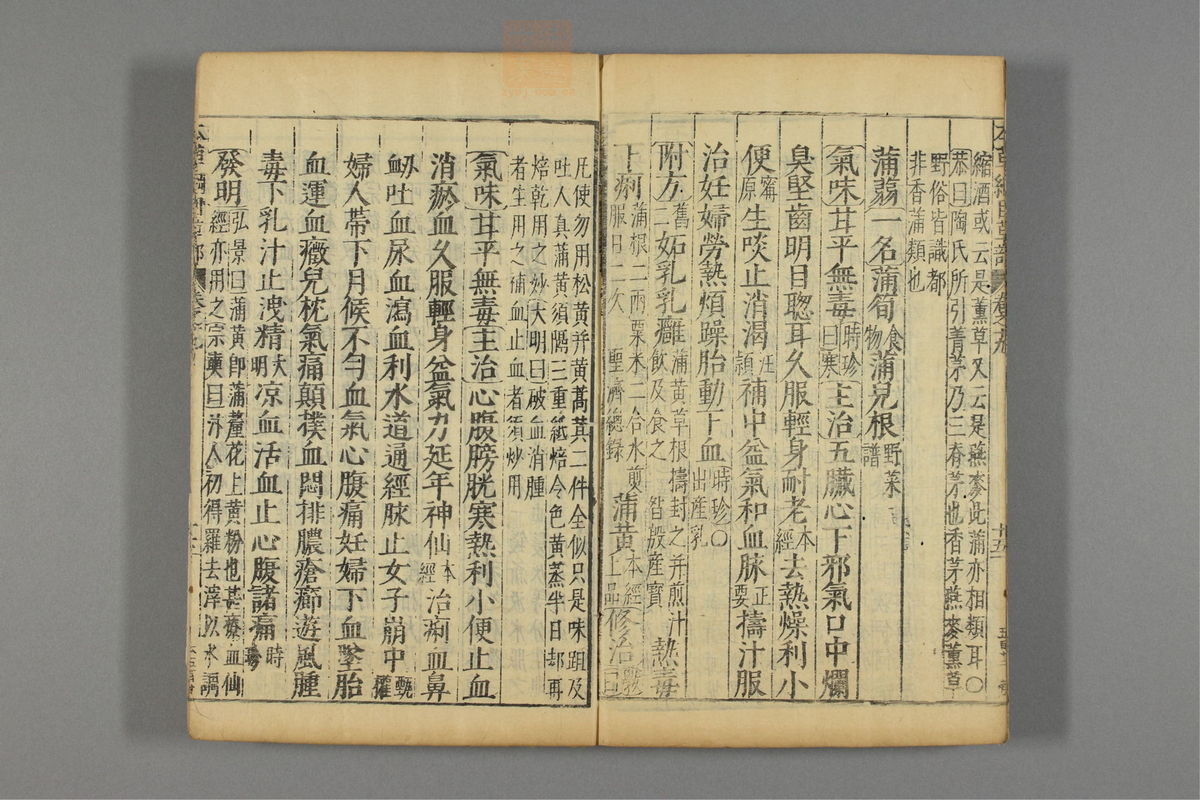 縮酒或云是薰草又云是燕麥此蒲亦相類耳〇
恭曰陶氏所引菁茅乃三脊茅也香茅燕麥薰草
野俗皆識都
非香蒲類也
蒲蒻一名蒲筍食物蒲兒根野菜譜
氣味甘平無毒時珍曰寒主治五臟心下邪氣口中爛
臭堅齒明目聰耳久服輕身耐老本經去熱燥利小
便甯原生啖止消渴汪頴補中益氣和血脉正要擣汁服
治妊婦勞熱煩躁胎動下血時珍〇出產乳
附方舊二妬乳乳癰蒲黃草根擣封之并煎汁飲及食之 昝殷產寶熱毒
下痢蒲根二兩粟米二合水煎服日二次 聖濟總錄蒲黃本經上品修治斆曰
凡使勿用松黃并黃蒿其二件全似只是味跙及
吐人真蒲黃須隔三重紙焙令色黃蒸半日却再
焙乾用之妙大明曰破血消腫
者生用之補血止血者須炒用
氣味甘平無毒主治心腹膀胱寒熱利小便止血
消瘀血久服輕身益氣力延年神仙本經治痢血鼻
衂吐血尿血瀉血利水道通經脉止女子崩中甄權
婦人帶下月候不勻血氣心腹痛妊婦下血墜胎
血運血癥兒枕氣痛顛撲血悶排膿瘡癤遊風腫
毒下乳汁止洩精大明凉血活血止心腹諸痛時珍
發明弘景曰蒲黃卽蒲釐花上黃粉也甚療血仙
經亦用之宗奭曰汴人初得羅去滓以水調